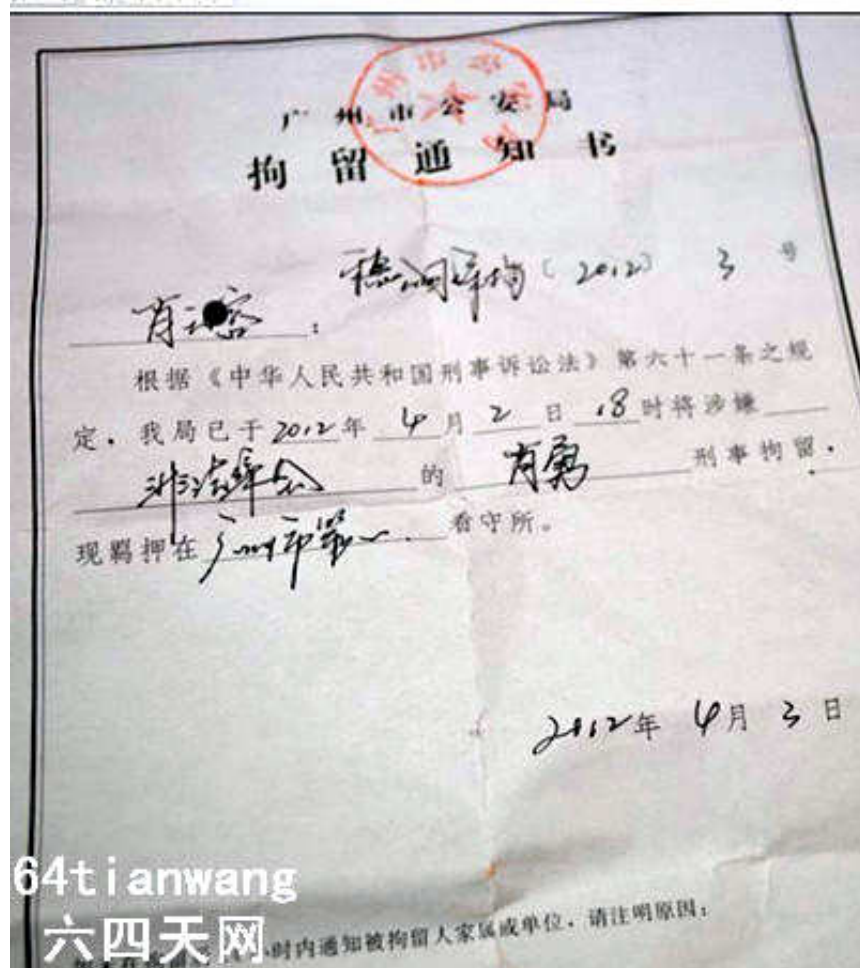 广州市公安局
拘留通知书
〔2012〕3号
肖 容:
根据《中华人民共和国刑事诉讼法》第六十一条之规
定,我局已于2012年4月2日18时将涉嫌
非法集会的肖勇刑事拘留。
现羁押在广州市第一看守所。
2012年4月3日
64tianwang
六四天网
小时内通知被拘留人家属或单位,请注明原因: